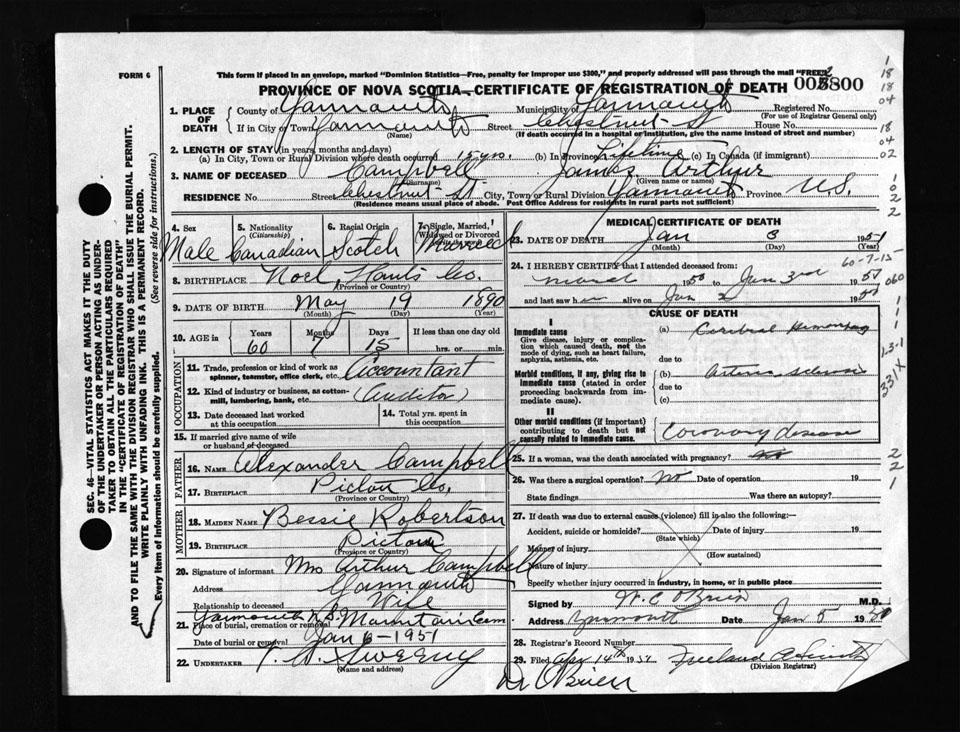 FORM 6
This form if placed in an envelope, marked "Dominion Statistics—Free, penalty for improper use $300," and properly addressed will pass through the mail "FREE"
PROVINCE OF NOVA SCOTIA—CERTIFICATE OF REGISTRATION OF DEATH
1. PLACE OF DEATH County of Yarmouth Municipality of Yarmouth Registered No.
(For use of Registrar General only)
If in City or Town Yarmouth Street Chestnut St House No.
(Name) (If death occurred in a hospital or institution, give name instead of street and number)
2. LENGTH OF STAY (in years, months and days)
(a) In City, Town or Rural Division where death occurred 15 yrs. (b) In Province Lifetime (c) In Canada (if immigrant)
3. NAME OF DECEASED Campbell James Arthur
(Surname) (Given name or names)
RESIDENCE No. Street Chestnut St. City, Town or Rural Division Yarmouth Province N.S.
(Residence means usual place of abode. Post Office Address for residents in rural parts not sufficient)
4. Sex Male
5. Nationality (Citizenship) Canadian
6. Racial Origin Scotch
7. Single, Married, Widowed or Divorced Married
8. BIRTHPLACE Noel Hants Co.
(Province or Country)
9. DATE OF BIRTH May 19 1890
(Month) (Day) (Year)
10. AGE in Years 60 Months 7 Days 15 If less than one day old hrs. or min.
OCCUPATION
11. Trade, profession or kind of work as spinner, teamster, office clerk, etc. Accountant
12. Kind of industry or business, as cotton-mill, lumbering, bank, etc. (Auditor)
13. Date deceased last worked at this occupation
14. Total yrs. spent in this occupation
15. If married give name of wife or husband of deceased
FATHER
16. NAME Alexander Campbell
17. BIRTHPLACE Pictou Co.
(Province or Country)
MOTHER
18. MAIDEN NAME Bessie Robertson
19. BIRTHPLACE Pictou
(Province or Country)
20. Signature of informant Mrs Arthur Campbell
Address Yarmouth
Relationship to deceased Wife
21. Place of burial, cremation or removal Yarmouth N.S. Mountain Cem
Date of burial or removal Jan 6-1951
22. UNDERTAKER Sweeny
(Name and address)
MEDICAL CERTIFICATE OF DEATH
23. DATE OF DEATH Jan 3 1951
(Month) (Day) (Year)
60-7-15
24. I HEREBY CERTIFY that I attended deceased from:
March 1950 to Jan 3rd 1951
and last saw him alive on Jan 2 1951
CAUSE OF DEATH
I
Immediate cause
Give disease, injury or complication which caused death, not the mode of dying, such as heart failure, asphyxia, asthenia, etc.
(a) Cerebral Hemorrhage
due to
Morbid conditions, if any, giving rise to immediate cause (stated in order proceeding backwards from immediate cause).
(b) arterio sclerosis
due to
(c)
II
Other morbid conditions (if important) contributing to death but not causally related to immediate cause.
Coronary disease
25. If a woman, was the death associated with pregnancy?
26. Was there a surgical operation? No Date of operation 19
State findings Was there an autopsy?
27. If death was due to external causes (violence) fill in also the following:—
Accident, suicide or homicide? Date of injury 19
(State which)
Manner of injury
(How sustained)
Nature of injury
Specify whether injury occurred in industry, in home, or in public place
Signed by W. C. O'Brien M.D.
Address Yarmouth Date Jan 5 19
28. Registrar's Record Number
29. Filed Apr 14th 1951 Freeland
(Division Registrar)
Dr. O'Brien
SEC. 46—VITAL STATISTICS ACT MAKES IT THE DUTY OF THE UNDERTAKER OR PERSON ACTING AS UNDERTAKER TO OBTAIN ALL THE PARTICULARS REQUIRED IN THE "CERTIFICATE OF REGISTRATION OF DEATH" AND TO FILE THE SAME WITH THE DIVISION REGISTRAR WHO SHALL ISSUE THE BURIAL PERMIT.
WRITE PLAINLY WITH UNFADING INK. THIS IS A PERMANENT RECORD.
Every item of information should be carefully supplied. (See reverse side for instructions.)
1
18
18
04
18
04
02
1
0
2
2
060
1
1
1
231X
2
2
1